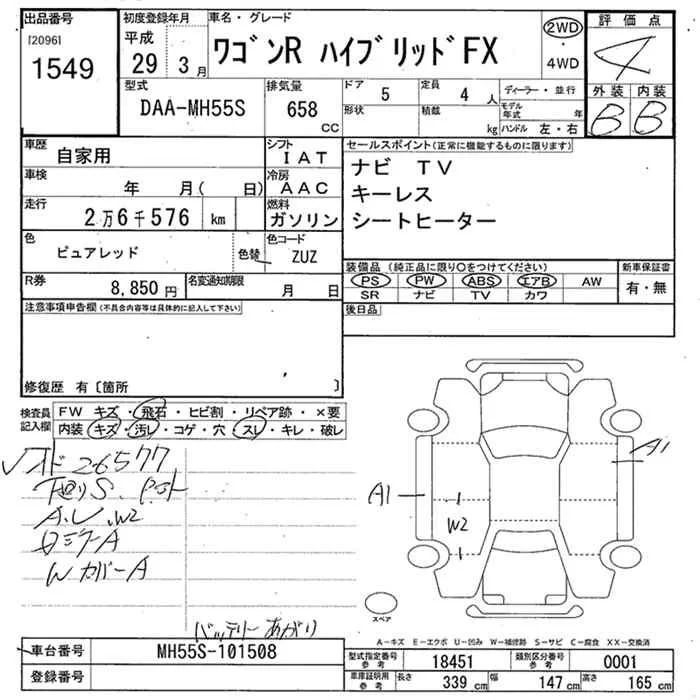 出品番号
[2096]
1549
初度登録年月
平成
29 年 3 月
車名・グレード
ワゴンR ハイブリッドFX
2WD
・
4WD
評価点
4
外装 内装
B B
型式
DAA-MH55S
排気量
658 cc
ドア 5
形状
定員 4 人
積載 kg
ディーラー・並行
モデル年式 年
ハンドル 左・右
車歴
自家用
シフト
IAT
車検
年 月( 日)
冷房
AAC
走行
2万6千576 km
燃料
ガソリン
色
ピュアレッド
色替
色コード
ZUZ
R券
8,850 円
名変通知期限
月 日
セールスポイント(正常に機能するものに限ります)
ナビ TV
キーレス
シートヒーター
装備品 (純正品に限り○をつけてください)
PS PW ABS エアB AW
SR ナビ TV カワ
新車保証書
有・無
後日品
注意事項申告欄(不具合内容等は具体的に記入して下さい)
修復歴 有〔箇所 〕
検査員記入欄
FW キズ・飛石・ヒビ割・リペア跡・×要
内装 キズ・汚レ・コゲ・穴・スレ・キレ・破レ
26577
下廻りS.
A.U.W2
ロミラーA
WカバーA
バッテリーあがり
A1
A1
W2
スペア
A−キズ E−エクボ U−凹み W−補修跡 S−サビ C−腐食 XX−交換済
車台番号
MH55S-101508
登録番号
型式指定番号
参考
18451
類別区分番号
参考
0001
車庫証明用
参考
長さ 339 cm
幅 147 cm
高さ 165 cm